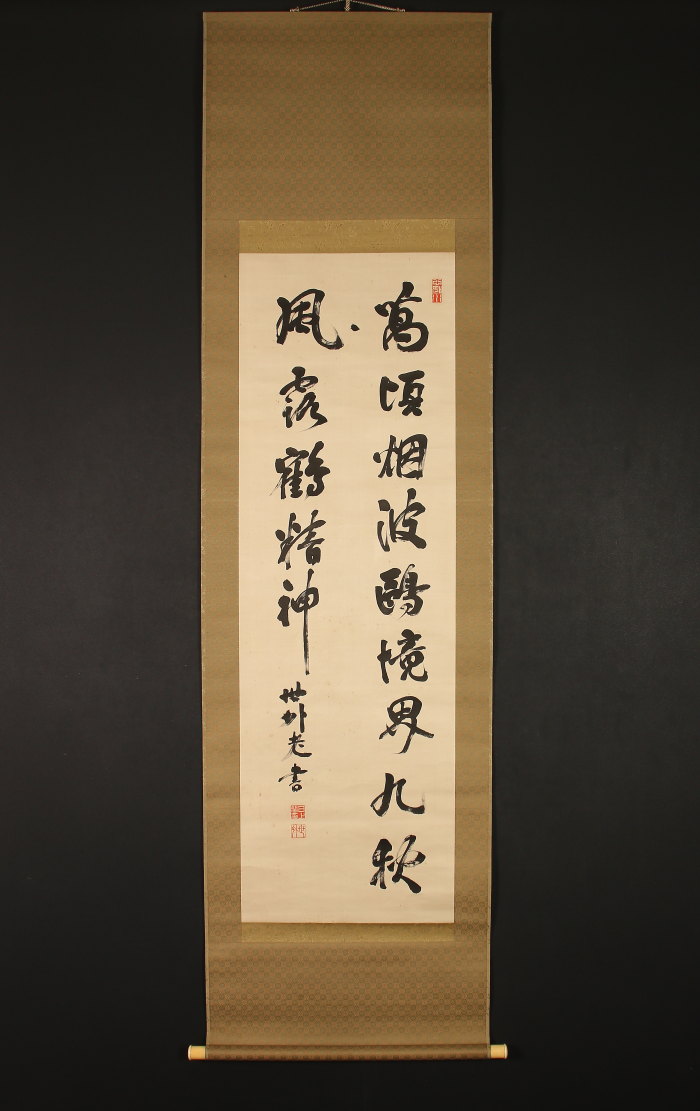 萬頃烟波鷗境界九秋
風露鶴精神
世外老書